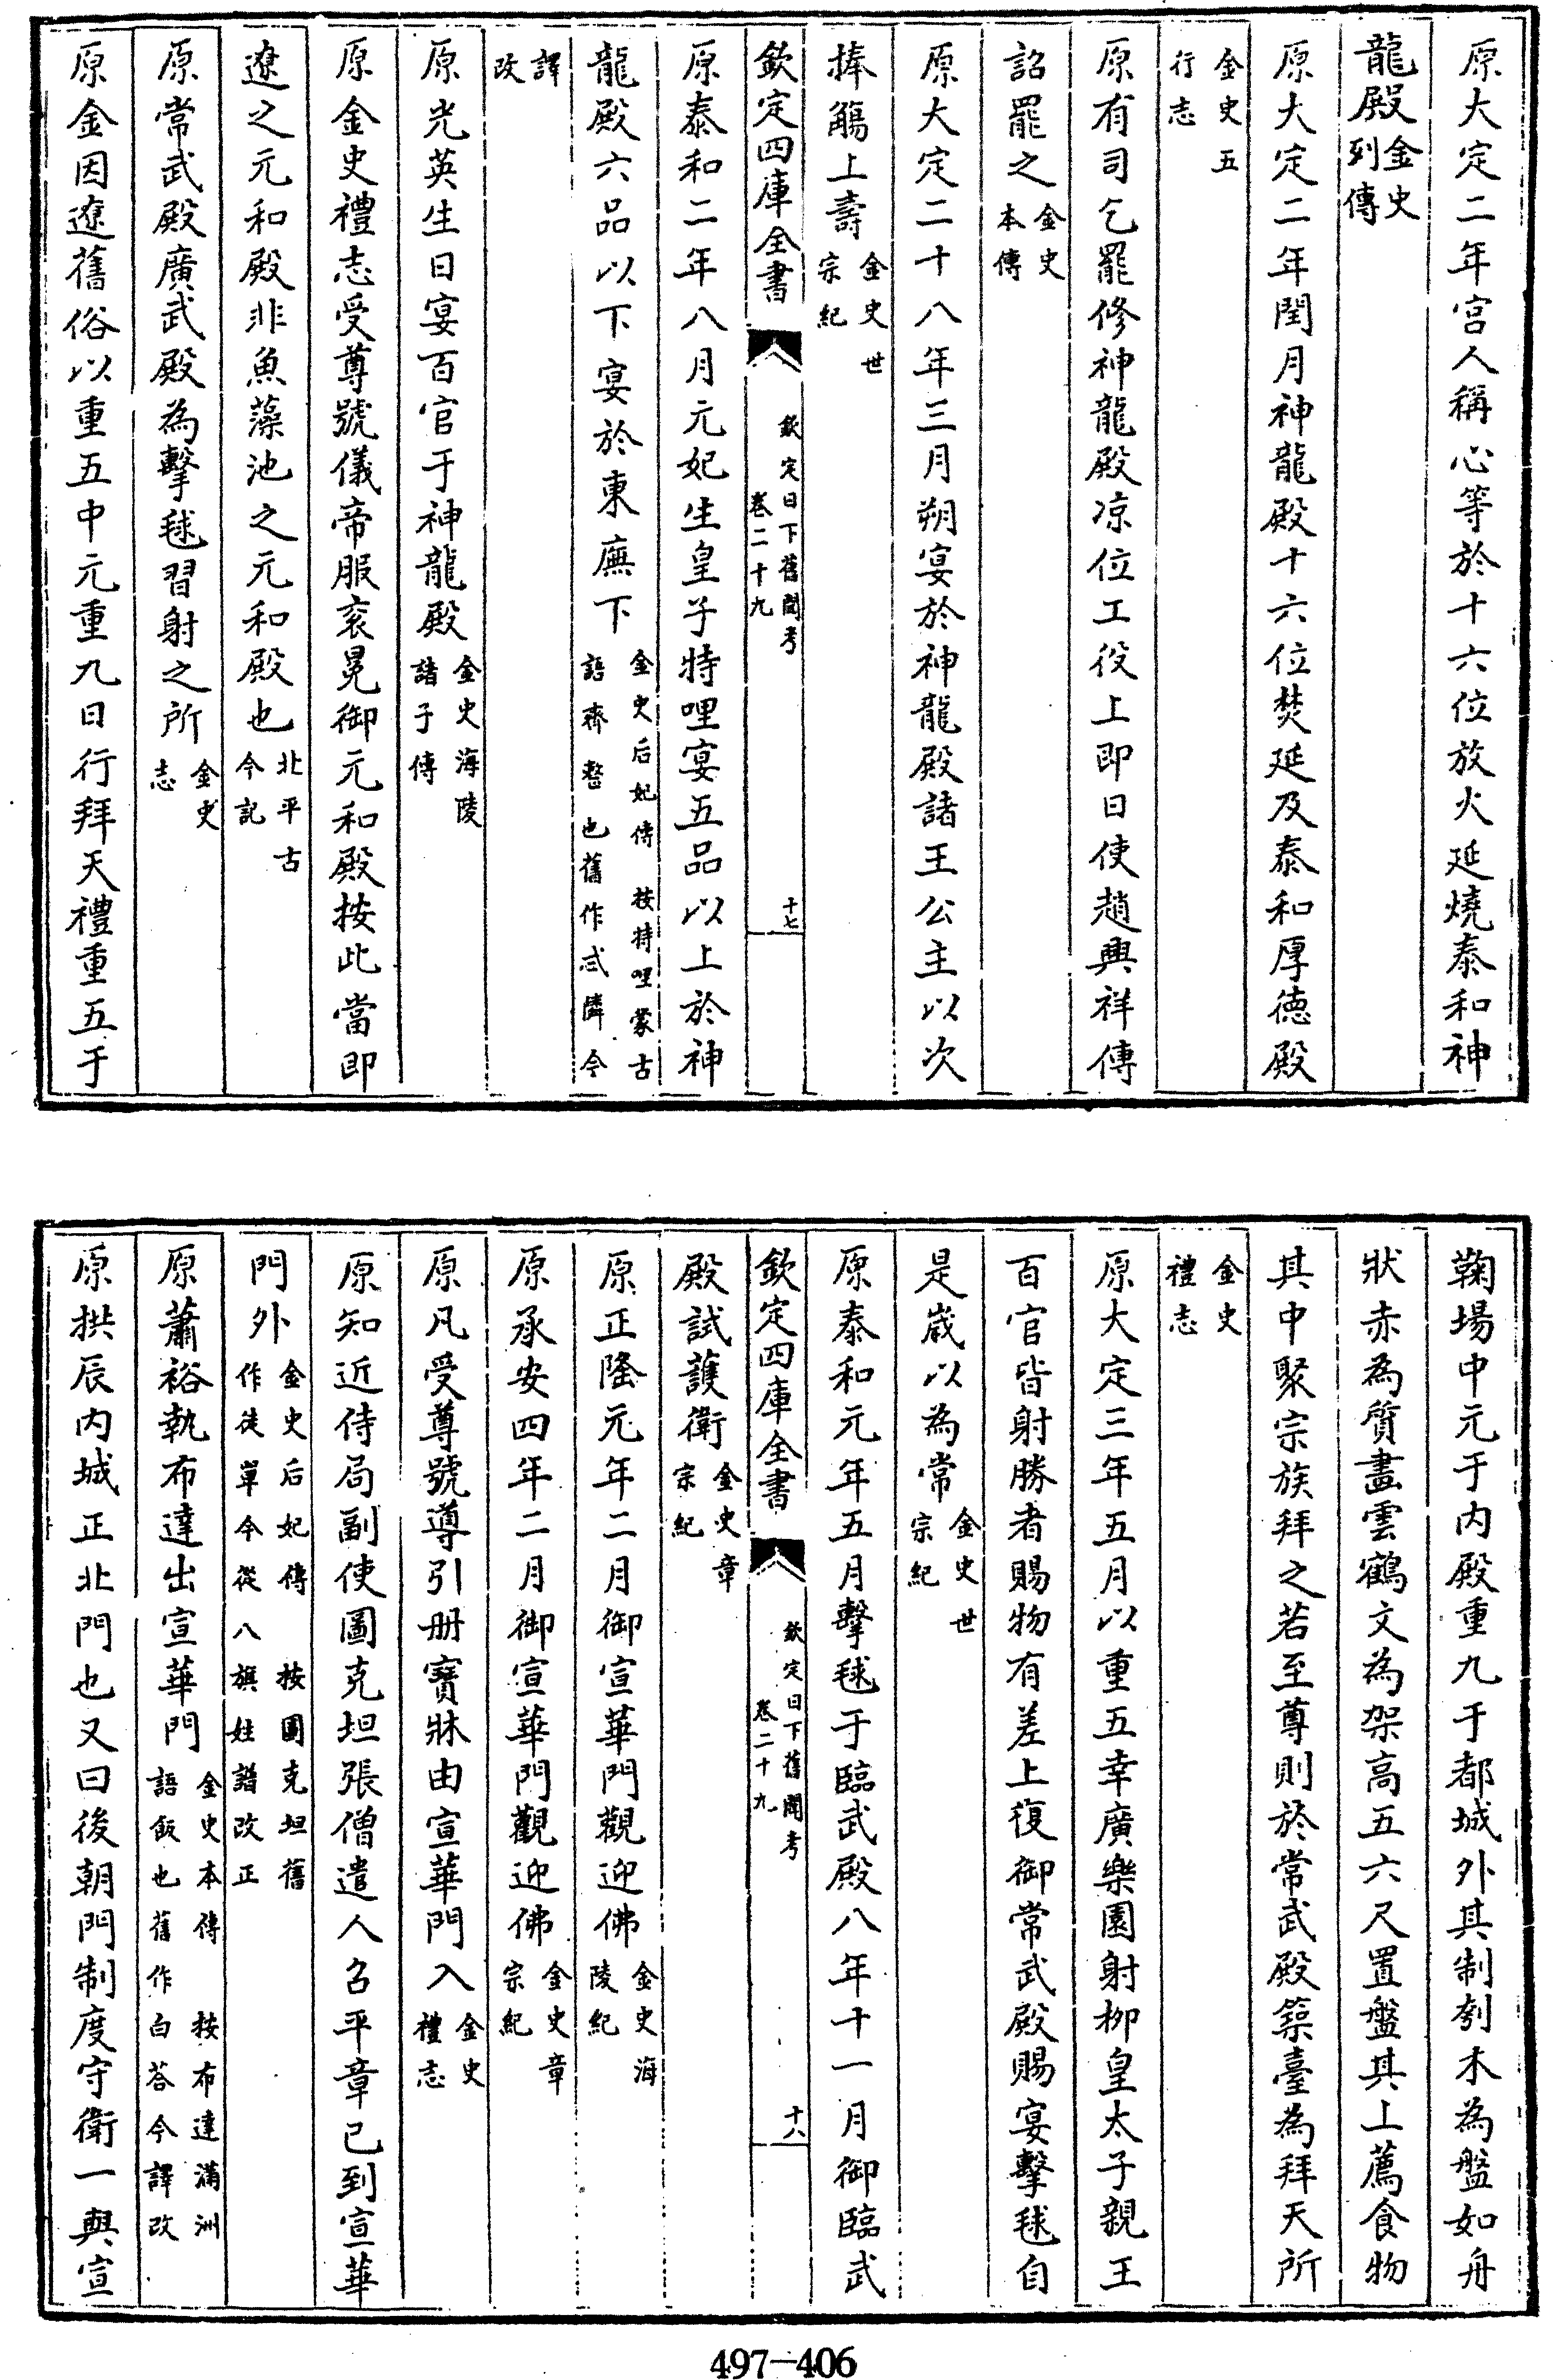 原大定二年宫人稱心等於十六位放火延燒泰和神
龍殿金史列傳
原大定二年閏月神龍殿十六位焚延及泰和厚德殿
金史五行志
原有司乞罷修神龍殿凉位工役上即日使趙興祥傳
詔罷之金史本傳
原大定二十八年三月朔宴於神龍殿諸王公主以次
捧觴上壽金史世宗紀
欽定四庫全書 欽定日下舊聞考 卷二十九 十七
原泰和二年八月元妃生皇子特哩宴五品以上於神
龍殿六品以下宴於東廡下金史后妃傳 按特哩蒙古語齊整也舊作忒隣今
譯改
原光英生日宴百官于神龍殿金史海陵諸子傳
原金史禮志受尊號儀帝服衮冕御元和殿按此當即
遼之元和殿非魚藻池之元和殿也北平古今記
原常武殿廣武殿為擊毬習射之所金史志
原金因遼舊俗以重五中元重九日行拜天禮重五于
鞠場中元于内殿重九于都城外其制刳木為盤如舟
狀赤為質畫雲鶴文為架高五六尺置盤其上薦食物
其中聚宗族拜之若至尊則於常武殿築臺為拜天所
金史禮志
原大定三年五月以重五幸廣樂園射柳皇太子親王
百官皆射勝者賜物有差上復御常武殿賜宴擊毬自
是歲以為常金史世宗紀
原泰和元年五月擊毬于臨武殿八年十一月御臨武
欽定四庫全書 欽定日下舊聞考 卷二十九 十八
殿試護衛金史章宗紀
原正隆元年二月御宣華門觀迎佛金史海陵紀
原承安四年二月御宣華門觀迎佛金史章宗紀
原凡受尊號導引册寶牀由宣華門入金史禮志
原知近侍局副使圖克坦張僧遣人召平章已到宣華
門外金史后妃傳 按圖克坦舊作徒單今從八旗姓譜改正
原蕭裕執布達出宣華門金史本傳 按布達滿洲語飯也舊作白荅今譯改
原拱辰内城正北門也又曰後朝門制度守衛一與宣
497-406